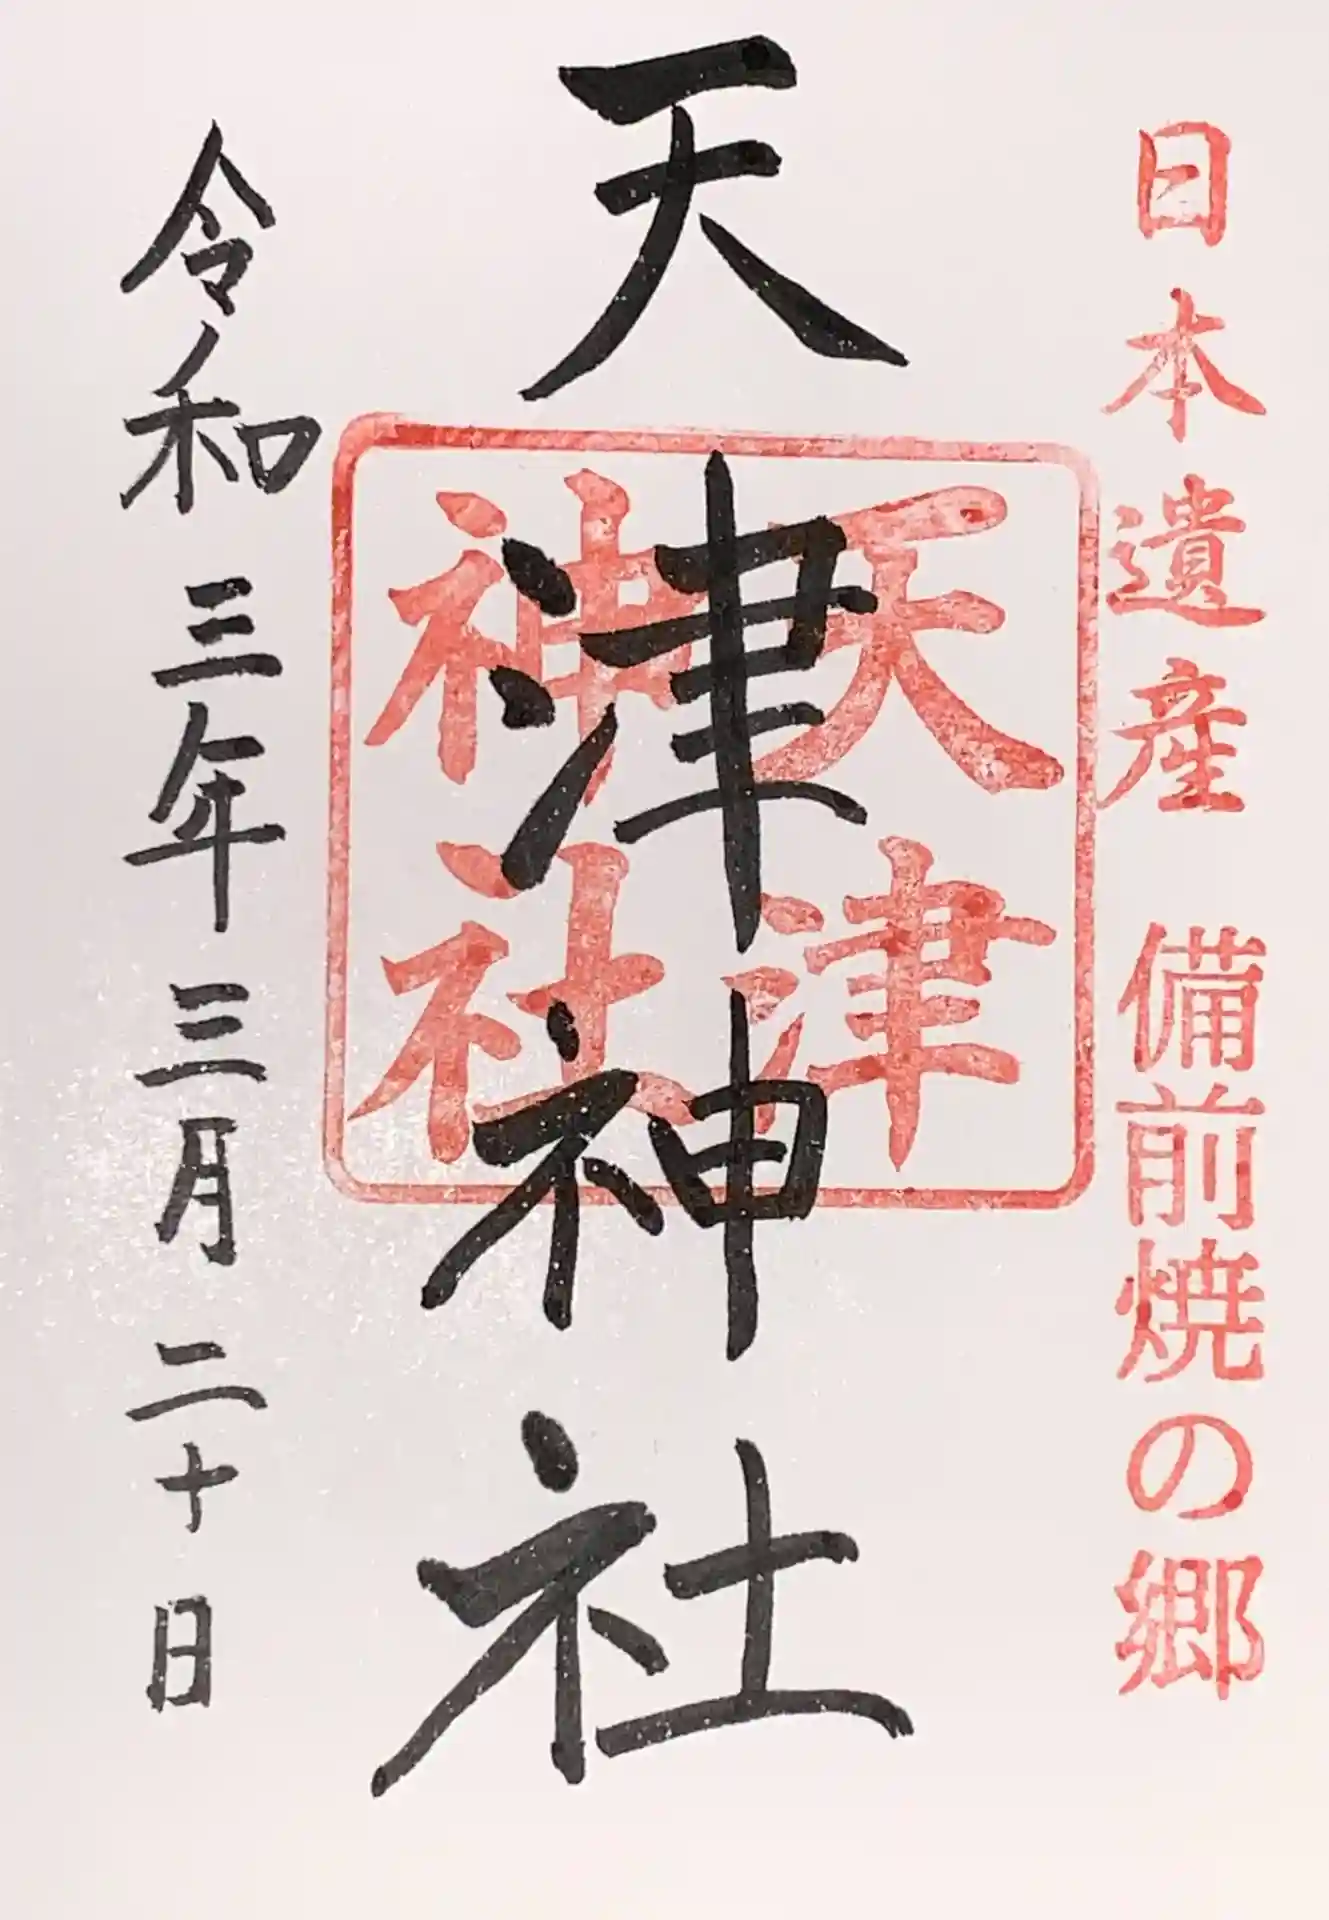 日本遺産 備前焼の郷
天津神社
天津
神社
令和三年三月二十日